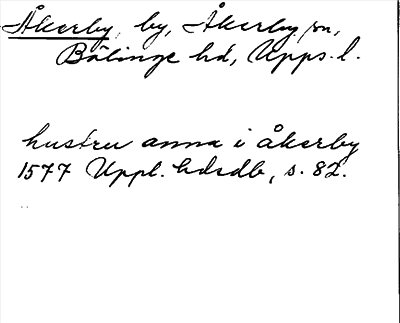 Åkerby, by, Åkerby sn,
Bälinge hd, Upps. l.
hustru anna i åkerby
1577 Uppl. hdsdb, s. 82.